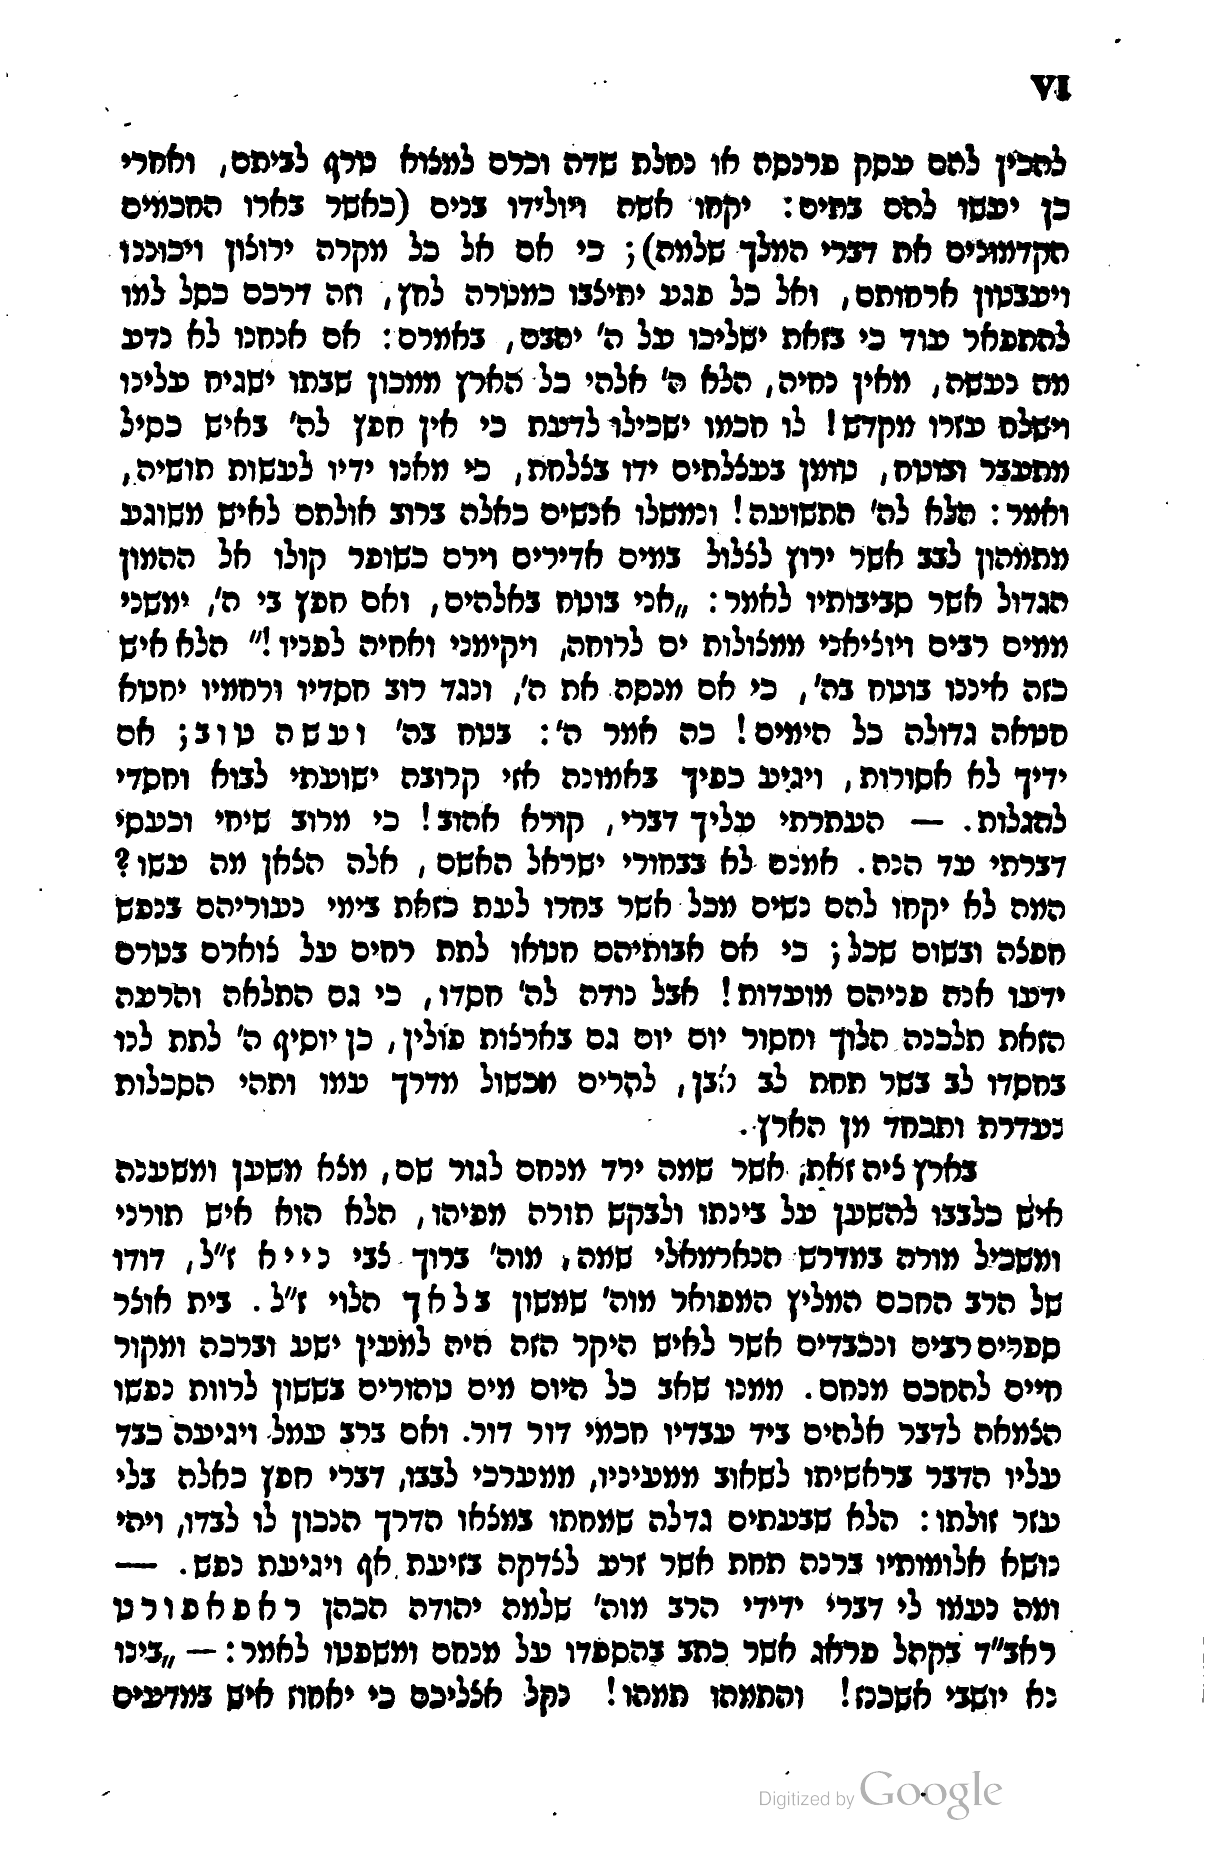 VI
להכין להם עסק פרנסה או נחלת שדה וכרם למצוא טרף לביתם, ואחרי
כן יעשו להם בתים: יקחו אשה ויולידו בנים (כאשר בארו החכמים
הקדמונים את דברי המלך שלמה); כי אם אל כל מקרה ירוצון ויכוננו
ויעבטון ארחותם, ואל כל פגע יתיצבו כמטרה לחץ, זה דרכם כסל למו
להתפאר עוד כי בזאת ישליכו על ה' יהבם, באמרם: אם אנחנו לא נדע
מה נעשה, מאין נחיה, הלא ה' אלהי כל הארץ ממכון שבתו ישגיח עלינו
וישלח עזרו מקדש! לו חכמו ישכילו לדעת כי אין חפץ לה' באיש כסיל
מתעבר ובוטח, טומן בעצלתים ידו בצלחת, כי מאנו ידיו לעשות תושיה,
ואמר: הלא לה' התשועה! ונמשלו אנשים כאלה ברוב אולתם לאיש משוגע
מתמהון לבב אשר ירוץ לצלול במים אדירים וירם כשופר קולו אל ההמון
הגדול אשר סביבותיו לאמר: „אני בוטח באלהים, ואם חפץ בי ה', ימשני
ממים רבים ויוציאני ממצולות ים לרוחה, ויקימני ואחיה לפניו!" הלא איש
כזה איננו בוטח בה', כי אם מנסה את ה', ונגד רוב חסדיו ורחמיו יחטא
חטאה גדולה כל הימים! כה אמר ה': בטח בה' ועשה טוב; אם
ידיך לא אסורות, ויגיע כפיך באמונה אזי קרובה ישועתי לבוא וחסדי
להגלות. — העתרתי עליך דברי, קורא אהוב! כי מרוב שיחי וכעסי
דברתי עד הנה. אמנם לא בבחורי ישראל האשם, אלה הצאן מה עשו?
המה לא יקחו להם נשים מכל אשר בחרו לעת כזאת בימי נעוריהם בנפש
חפצה ובשום שכל; כי אם אבותיהם חטאו לתת רחים על צוארם בטרם
ידעו אנה פניהם מועדות! אבל נודה לה' חסדו, כי גם התלאה והרעה
הזאת תלכנה הלוך וחסור יום יום גם בארצות פולין, כן יוסיף ה' לתת לנו
בחסדו לב בשר תחת לב אבן, להרים מכשול מדרך עמו ותהי הסכלות
נעדרת ותכחד מן הארץ.
בארץ ציה זאת, אשר שמה ירד מנחם לגור שם, מצא משען ומשענה
איש כלבבו להשען על בינתו ולבקש תורה מפיהו, הלא הוא איש תורני
ומשכיל מורה במדרש הנארמאלי שמה, מוה' ברוך צבי נייא ז"ל, דודו
של הרב החכם המליץ המפואר מוה' שמשון בלאך הלוי ז"ל. בית אוצר
ספרים רבים ונכבדים אשר לאיש היקר הזה היה למעין ישע וברכה ומקור
חיים להחכם מנחם. ממנו שאב כל היום מים טהורים בששון לרוות נפשו
הצמאה לדבר אלהים ביד עבדיו חכמי דור דור. ואם ברב עמל ויגיעה כבד
עליו הדבר בראשיתו לשאוב ממעיניו, ממערכי לבבו, דברי חפץ כאלה בלי
עזר זולתו: הלא שבעתים גדלה שמחתו במצאו הדרך הנכון לו לבדו, ויהי
נושא אלומותיו ברנה תחת אשר זרע לצדקה בזיעת אף ויגיעת נפש. —
ומה נעמו לי דברי ידידי הרב מוה' שלמה יהודה הכהן ראפאפורט
ראב"ד בקהל פראג אשר כתב בהספדו על מנחם ומשפטו לאמר: — „בינו
נא יושבי אשכנז! והתמהו תמהו! נקל אצליכם כי יאסוז איש במדעים
Digitized by Google